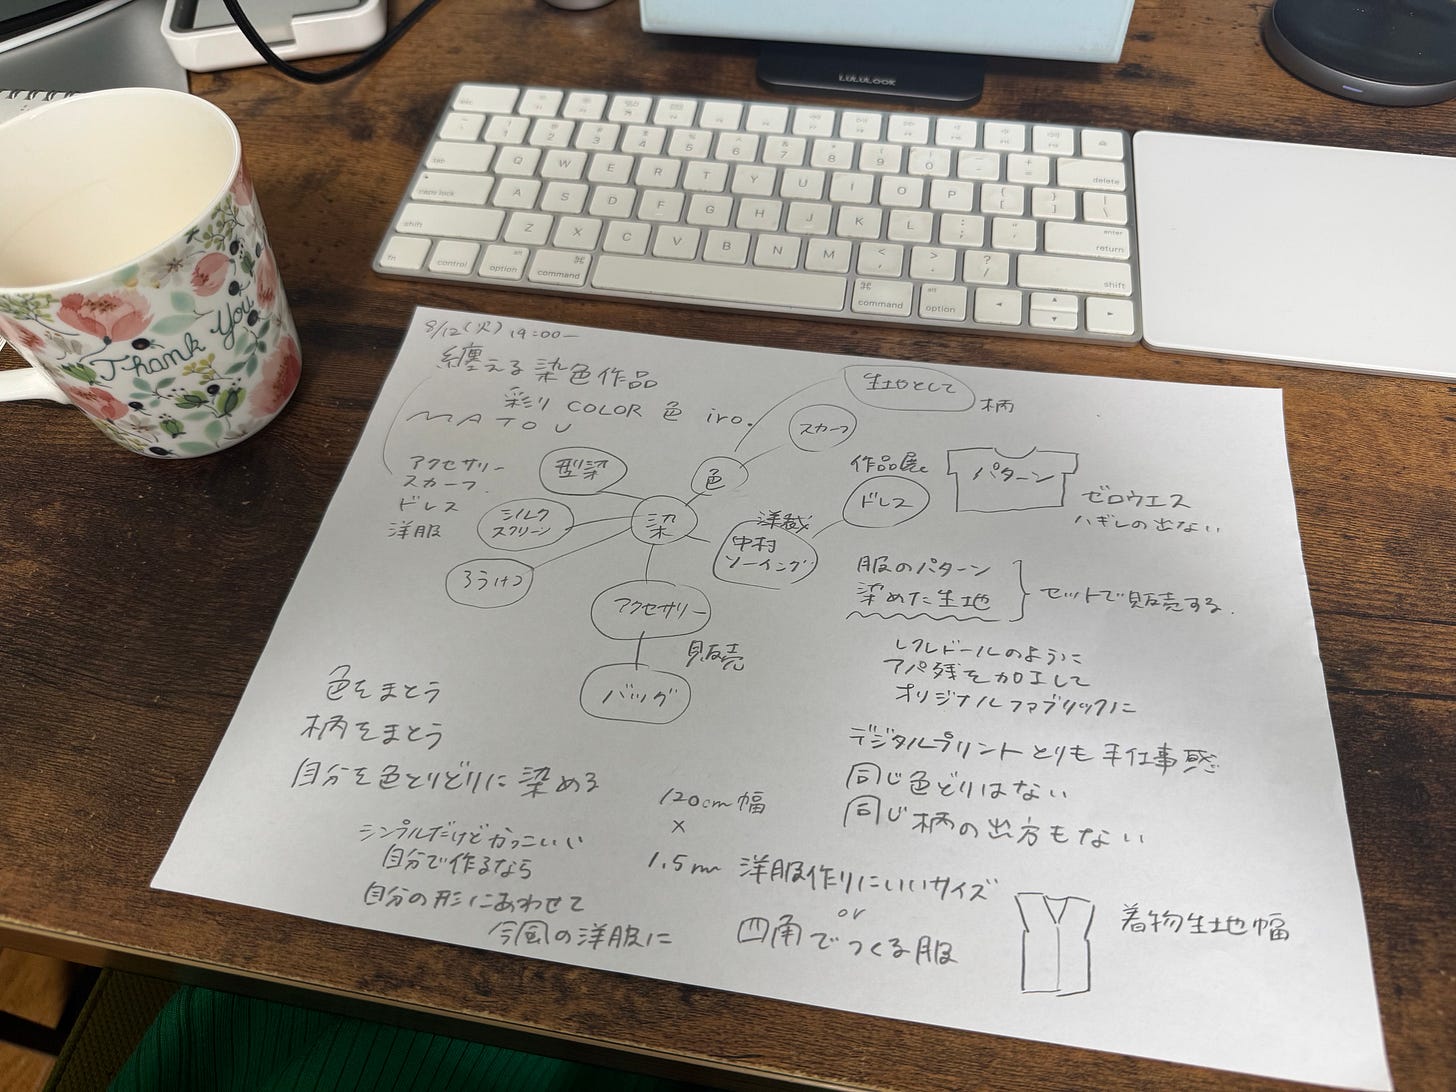 LULULOOK
esc
~ `
! 1
@ 2
# 3
$ 4
% 5
^ 6
& 7
* 8
( 9
) 0
_ -
+ =
delete
tab
Q W E R T Y U I O P { [ } ] | \
caps lock
A S D F G H J K L : ; " '
enter
return
shift
Z X C V B N M < , > . ? /
shift
fn
control
alt
option
⌘
command
⌘
command
alt
option
Thank You
8/12(火) 19:00〜
纏える染色作品
彩り COLOR 色 iro.
MATOU
アクセサリー
スカーフ
ドレス
洋服
生地として
柄
スカーフ
色
型染
シルク
スクリーン
ろうけつ
染
洋裁
中村
ソーイング
作品展
ドレス
パターン
ゼロウエス
ハギレの出ない
アクセサリー
販売
バッグ
服のパターン
染めた生地
セットで販売する.
アパ残を加工して
オリジナルファブリックに
デジタルプリントよりも手仕事感
同じ色どりはない
同じ柄の出方もない
色をまとう
柄をまとう
自分を色とりどりに染める
シンプルだけどかっこいい
自分で作るなら
自分の形にあわせて
今風の洋服に
120cm幅
×
1.5m 洋服作りにいいサイズ
or
四角でつくる服
着物生地幅